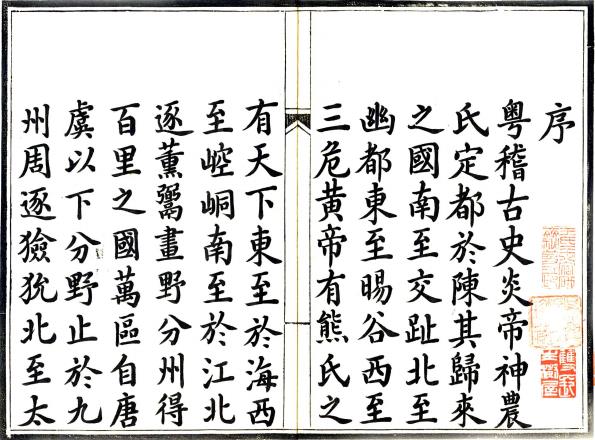 序
粵稽古史炎帝神農
氏定都於陳其歸來
之國南至交趾北至
幽都東至暘谷西至
三危黃帝有熊氏之
有天下東至於海西
至崆峒南至於江北
逐薰鬻畫野分州得
百里之國萬區自唐
虞以下分野止於九
州周逐獫狁北至太